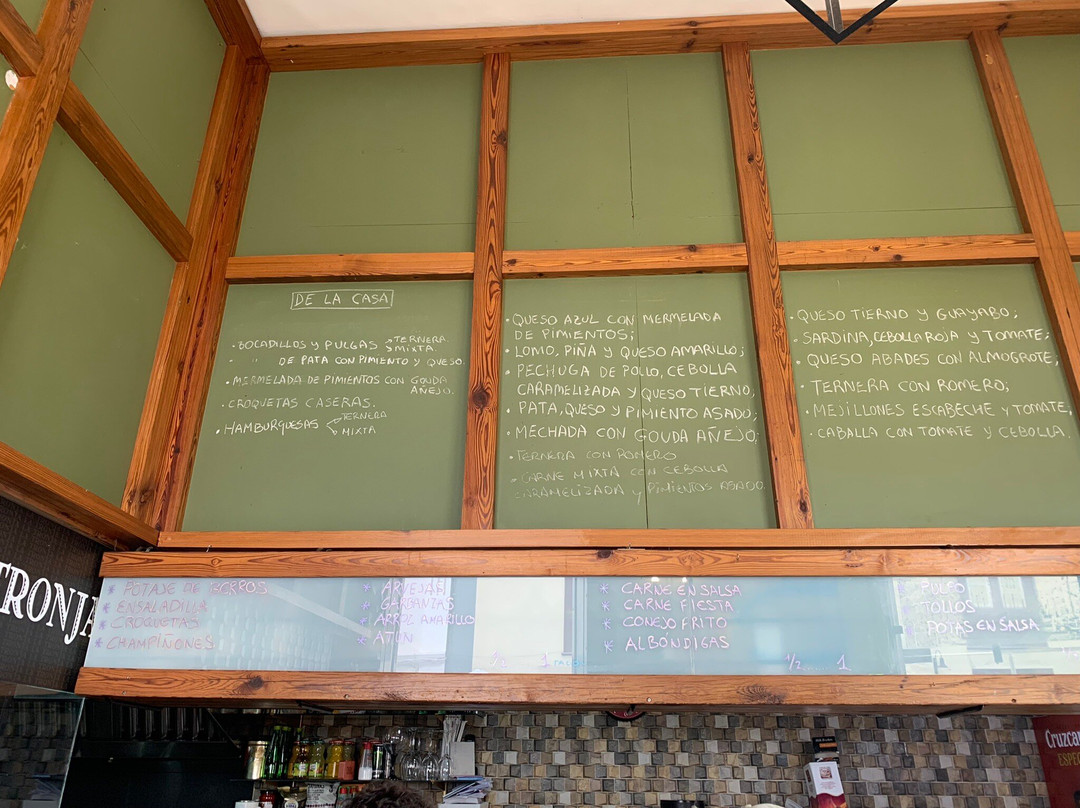 DE LA CASA
• BOCADILLOS Y PULGAS TERNERA
MIXTA
• " DE PATA CON PIMIENTO Y QUESO.
• MERMELADA DE PIMIENTOS CON GOUDA
AÑEJO.
• CROQUETAS CASERAS.
• HAMBURGUESAS TERNERA
MIXTA
• QUESO AZUL CON MERMELADA
DE PIMIENTOS;
• LOMO, PIÑA Y QUESO AMARILLO;
• PECHUGA DE POLLO, CEBOLLA
CARAMELIZADA Y QUESO TIERNO;
• PATA, QUESO Y PIMIENTO ASADO;
• MECHADA CON GOUDA AÑEJO;
• TERNERA CON ROMERO
• CARNE MIXTA CON CEBOLLA
CARAMELIZADA Y PIMIENTOS ASADO.
• QUESO TIERNO Y GUAYABO;
• SARDINA, CEBOLLA ROJA Y TOMATE;
• QUESO ABADES CON ALMOGROTE;
• TERNERA CON ROMERO;
• MEJILLONES ESCABECHE Y TOMATE,
• CABALLA CON TOMATE Y CEBOLLA.
* POTAJE DE BERROS
* ENSALADILLA
* CROQUETAS
* CHAMPIÑONES
* ARVEJAS
* GARBANZAS
* ARROZ AMARILLO
* ATÚN
1/2 1
* CARNE EN SALSA
* CARNE FIESTA
* CONEJO FRITO
* ALBÓNDIGAS
1/2 ...... 1
* PULPO
* TOLLOS
* POTAS EN SALSA
1/2
TRONJA
Cruzcam
ESPEC